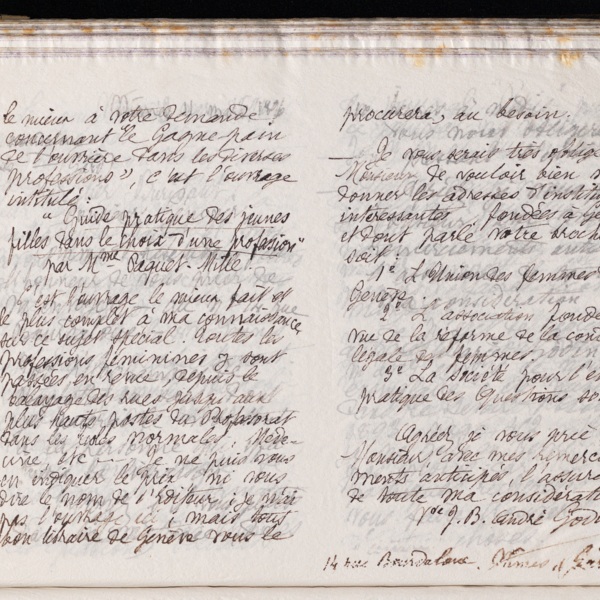 le mieux à votre demande,
concernant "le Gagne-pain
de l'ouvrière dans les diverses
professions", c'est l'ouvrage
intitulé :
"Guide pratique des jeunes
filles dans le choix d'une profession"
par Mme Paquet-Mille.
C'est l'ouvrage le mieux fait et
le plus complet à ma connaissance
sur ce sujet spécial. Toutes les
professions féminines y sont
passées en revue, depuis le
balayage des rues jusqu'aux
plus hauts postes du Professorat
dans les écoles normales, Méde-
cine, etc. Je ne puis vous
en indiquer le prix ni vous
dire le nom de l'Editeur ; je n'ai
pas l'ouvrage ici ; mais tout
bon libraire de Genève vous le
procurera, au besoin.
Je vous serais très oblig
Monsieur, de vouloir bien m
donner les adresses d'institu
intéressantes fondées à Ge
et dont parle votre broch
soit :
1e L'Union des femmes
Genève.
2e L'association fondé
vue de la réforme de la cond
légale des femmes.
3e La Société pour l'é
pratique des Questions so
Agréez, je vous prie
Monsieur, avec mes remercie
ments anticipés, l'assura
de toute ma considérati
Vve J. B. André Godi
14 rue Bourdaloue. Nîmes